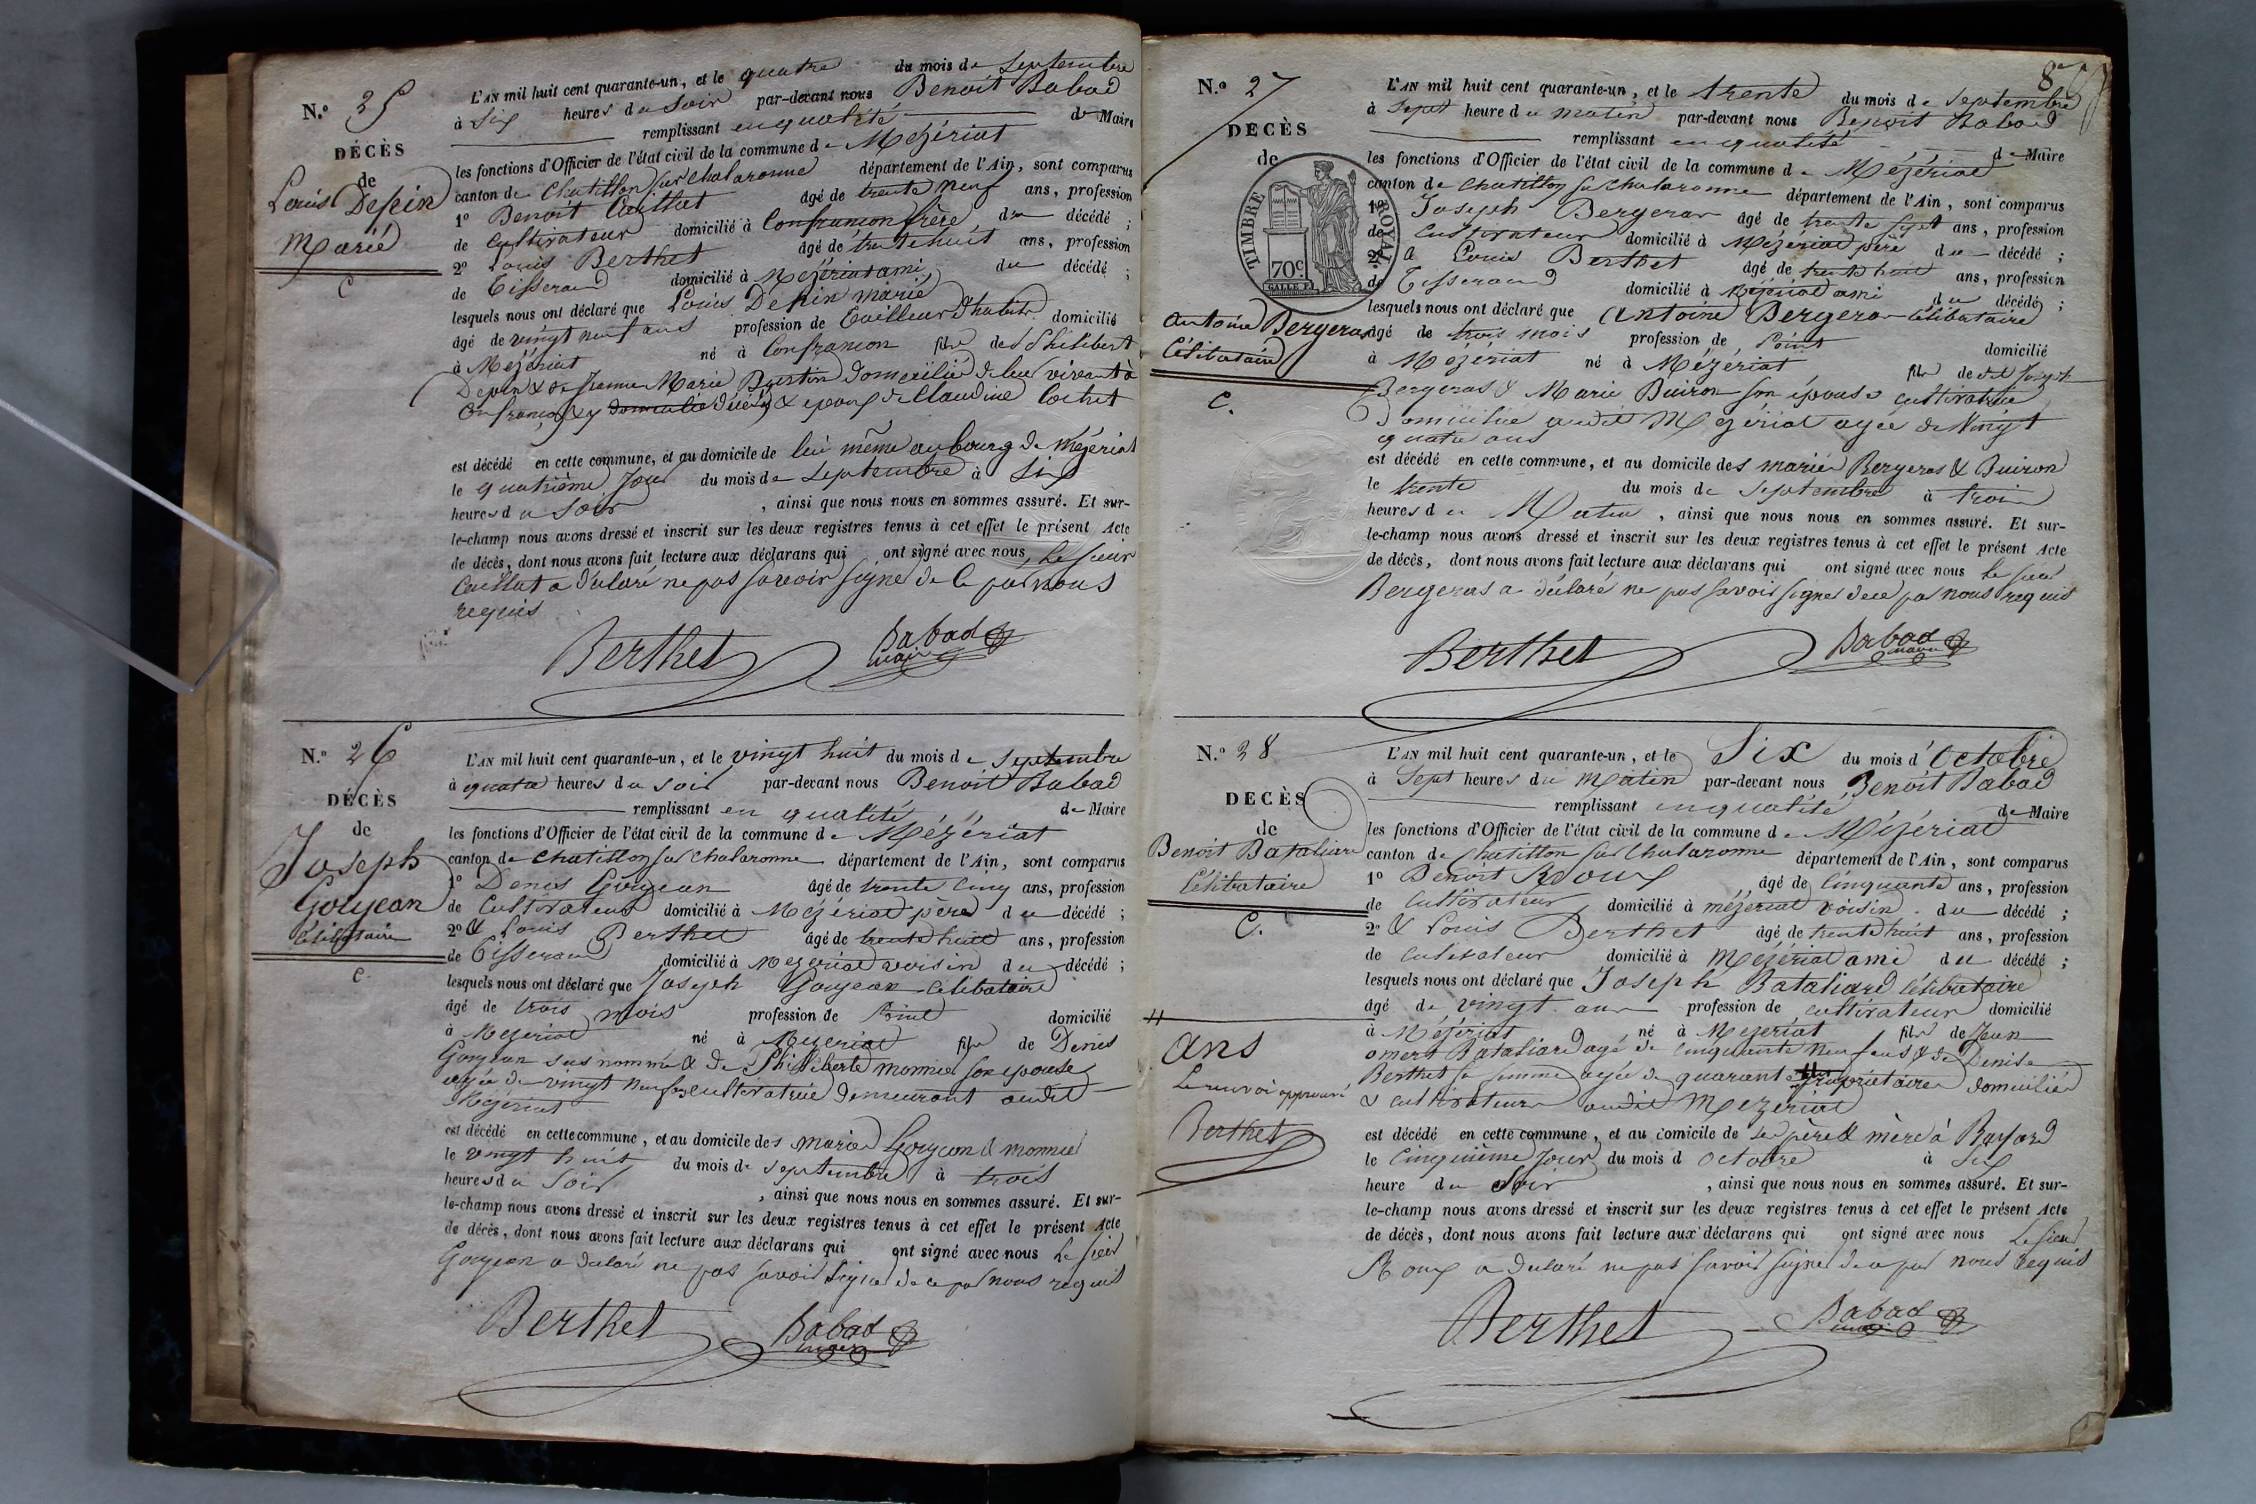 N.º 25
DÉCÈS
de
Louis Depin
Marié
C
L'AN mil huit cent quarante-un, et le quatre du mois de Septembre
à Six heures du Soir par-devant nous Benoit Babad
remplissant en qualité de Maire
les fonctions d'Officier de l'état civil de la commune de Mézériat
canton de Chatillon sur Chalaronne département de l'Ain, sont comparus
1º Benoit Cuillat âgé de trente neuf ans, profession
de Cultivateur domicilié à Confrançon frère du décédé ;
2º Louis Berthet âgé de trente huit ans, profession
de Tisserand domicilié à Mézériat ami du décédé ;
lesquels nous ont déclaré que Louis Depin marié
âgé de vingt neuf ans profession de Tailleur d'habits domicilié
à Mézériat né à Confrançon fils de Philibert
Depin & de Jeanne Marie Burtin domicilié de leur vivant à
Confrançon & y décédés & époux de Claudine Cochet
est décédé en cette commune, et au domicile de lui même au bourg de Mézériat
le quatrième Jour du mois de Septembre à Six
heures du Soir , ainsi que nous nous en sommes assuré. Et sur-
le-champ nous avons dressé et inscrit sur les deux registres tenus à cet effet le présent Acte
de décès, dont nous avons fait lecture aux déclarans qui ont signé avec nous, Le Sieur
Cuillat a déclaré ne pas savoir signer de ce par nous
requis
Berthet Babad
maire
N.º 26
DÉCÈS
de
Joseph
Goyeon
Célibataire
C
L'AN mil huit cent quarante-un, et le vingt huit du mois de septembre
à quatre heures du soir par-devant nous Benoit Babad
remplissant en qualité de Maire
les fonctions d'Officier de l'état civil de la commune de Mézériat
canton de Chatillon sur Chalaronne département de l'Ain, sont comparus
1º Denis Goyeon âgé de trente cinq ans, profession
de Cultivateur domicilié à Mézériat père du décédé ;
2º & Louis Berthet âgé de trente huit ans, profession
de Tisserand domicilié à Mezeriat voisin du décédé ;
lesquels nous ont déclaré que Joseph Goyeon célibataire
âgé de trois mois profession de point domicilié
à Mezeriat né à Mezeriat fils de Denis
Goyeon sus nommé & de Philiberte Monnier son epouse
agée de vingt neuf ans cultivatrice demeurant audit
Mezériat
est décédé en cette commune, et au domicile des mariés Goyeon & monnier
le vingt huit du mois de septembre à trois
heures du Soir , ainsi que nous nous en sommes assuré. Et sur-
le-champ nous avons dressé et inscrit sur les deux registres tenus à cet effet le présent Acte
de décès, dont nous avons fait lecture aux déclarans qui ont signé avec nous Le Sieur
Goyeon a déclaré ne pas savoir signer de ce par nous requis
Berthet Babad
maire
8
N.º 27
DÉCÈS
de
TIMBRE ROYAL
70c.
Antoine Bergeras
Célibataire
C.
L'AN mil huit cent quarante-un, et le trente du mois de Septembre
à Sept heure du matin par-devant nous Benoit Babad
remplissant en qualité de Maire
les fonctions d'Officier de l'état civil de la commune de Mézériat
canton de Chatillon sur Chalaronne département de l'Ain, sont comparus
1º Joseph Bergeras âgé de trente sept ans, profession
de Cultivateur domicilié à Mézériat père du décédé ;
2º & Louis Berthet âgé de trente huit ans, profession
de Tisserand domicilié à Mézériat ami du décédé ;
lesquels nous ont déclaré que Antoine Bergeras célibataire
âgé de trois mois profession de point domicilié
à Mezériat né à Mézériat fils de dit Joseph
Bergeras & Marie Buiron son épouse cultivatrice
Domiciliée audit Mezériat agée de Vingt
quatre ans
est décédé en cette commune, et au domicile des mariés Bergeras & Buiron
le trente du mois de Septembre à trois
heures du Matin , ainsi que nous nous en sommes assuré. Et sur-
le-champ nous avons dressé et inscrit sur les deux registres tenus à cet effet le présent Acte
de décès, dont nous avons fait lecture aux déclarans qui ont signé avec nous le sieur
Bergeras a déclaré ne pas savoir signer de ce par nous requis
Berthet Babad
maire
N.º 28
DECÈS
de
Benoit Bataliard
Célibataire
C.
ans
Le renvoi approuvé
Berthet
L'AN mil huit cent quarante-un, et le Six du mois d'Octobre
à Sept heures du matin par-devant nous Benoit Babad
remplissant en qualité de Maire
les fonctions d'Officier de l'état civil de la commune de Mézériat
canton de Chatillon sur Chalaronne département de l'Ain, sont comparus
1º Benoit Roux âgé de cinquante ans, profession
de Cultivateur domicilié à mézériat voisin du décédé ;
2º & Louis Berthet âgé de trente huit ans, profession
de cultivateur domicilié à Mézériat ami du décédé ;
lesquels nous ont déclaré que Joseph Bataliard Célibataire
âgé de vingt ans profession de cultivateur domicilié
à Mézériat né à Mezeriat fils de Jean
omert Bataliard agé de cinquante neuf ans & de Denise
Berthet sa femme agée de quarante propriétaires domiciliés
& cultivateurs audit Mezeriat
est décédé en cette commune, et au domicile de ses père & mère à
le cinquième Jour du mois d octobre à Six
heure du Soir , ainsi que nous nous en sommes assuré. Et sur-
le-champ nous avons dressé et inscrit sur les deux registres tenus à cet effet le présent Acte
de décès, dont nous avons fait lecture aux déclarans qui ont signé avec nous Le Sieur
Roux a déclaré ne pas savoir signer de ce par nous requis
Berthet Babad
maire